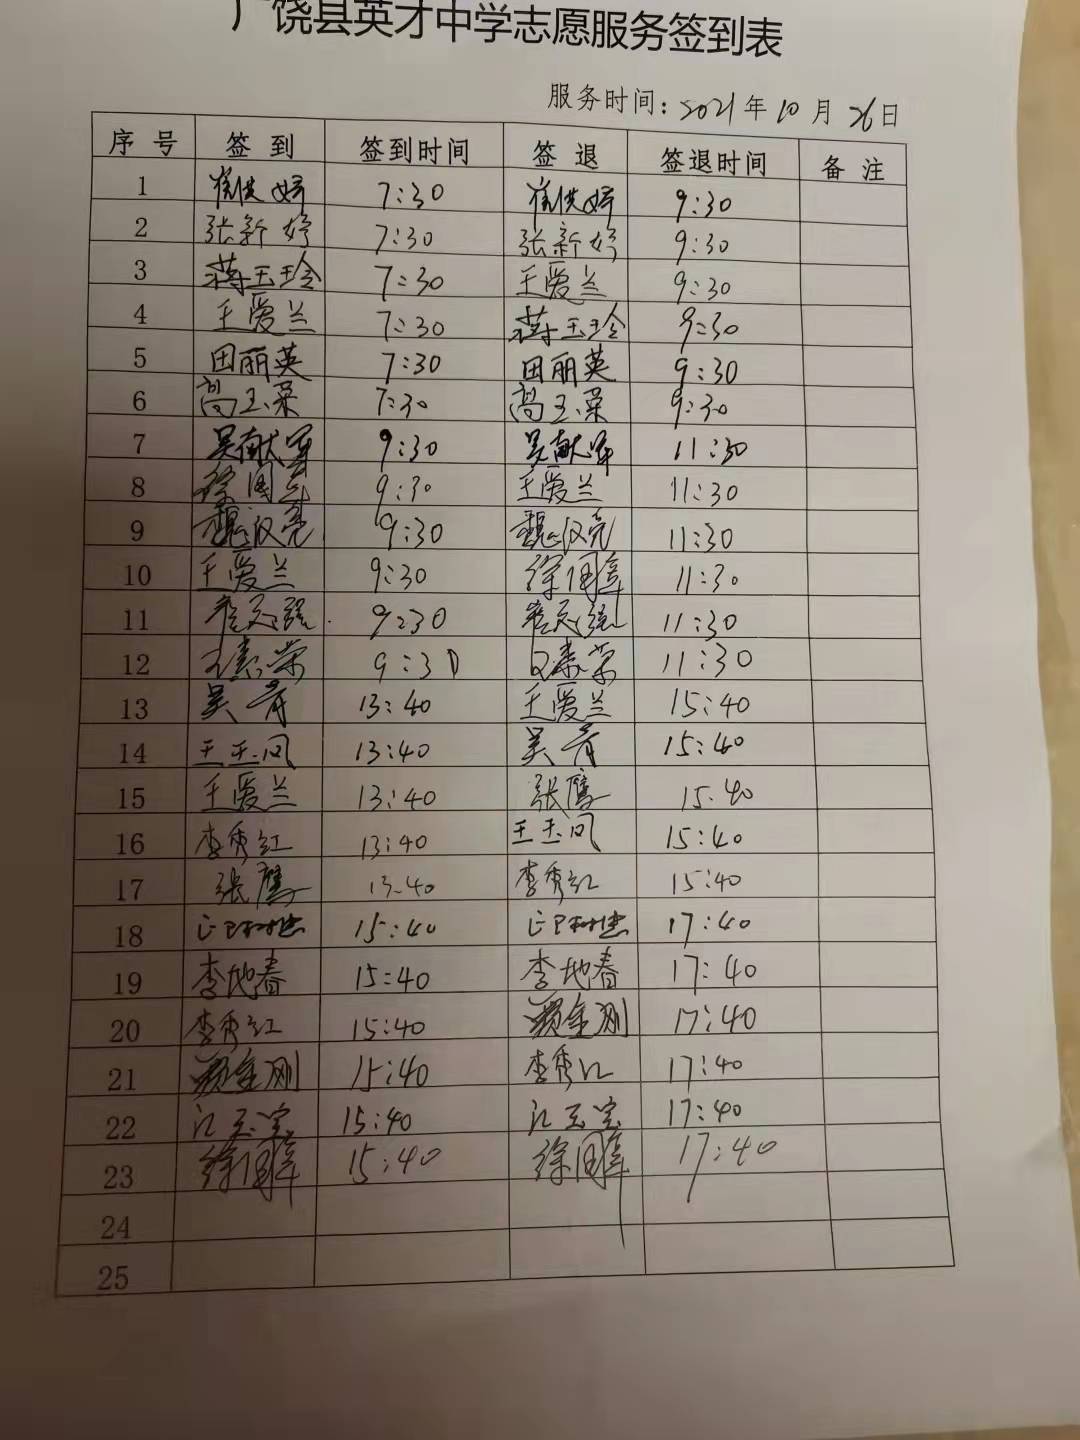 广饶县英才中学志愿服务签到表
服务时间：2021年10月26日
序号 签到 签到时间 签退 签退时间 备注
1 崔洪婷 7:30 崔洪婷 9:30
2 张新婷 7:30 张新婷 9:30
3 蒋玉玲 7:30 王爱兰 9:30
4 王爱兰 7:30 蒋玉玲 9:30
5 田丽英 7:30 田丽英 9:30
6 高玉荣 7:30 高玉荣 9:30
7 吴献军 9:30 吴献军 11:30
8 9:30 王爱兰 11:30
9 魏汉亮 9:30 魏汉亮 11:30
10 王爱兰 9:30 11:30
11 9:30 11:30
12 9:30 11:30
13 吴青 13:40 王爱兰 15:40
14 王玉凤 13:40 吴青 15:40
15 王爱兰 13:40 张鹰 15.40
16 李秀红 13:40 王玉凤 15:40
17 张鹰 13.40 李秀红 15:40
18 15:40 17:40
19 李地春 15:40 李地春 17:40
20 李秀红 15:40 17:40
21 15:40 李秀红 17:40
22 江玉宝 15:40 江玉宝 17:40
23 15:40 17:40
24
25